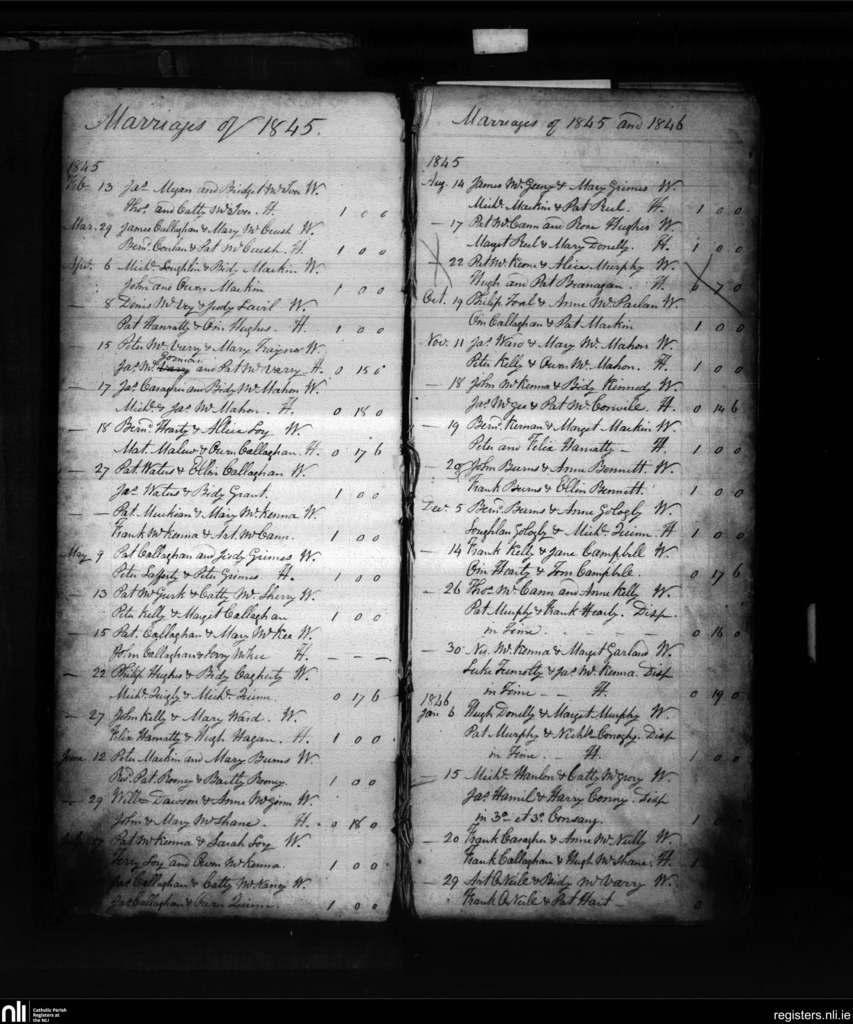 Marriages of 1845.
1845
Feb. 13 Jas. Myan and Bridget McIvor W.
Thos. and Catty McIvor. H. 1 0 0
Mar. 29 James Callaghan & Mary McCush W.
Bern. Conlan & Pat McCush. H. 1 0 0
Apr. 6 Michl. Loughlin & Bidy Mackin W.
John and Owen Mackin 1 0 0
— 8 Denis McVey & Judy W.
Pat Hanratty & Oin Hughes. H. 1 0 0
— 15 Peter McVarry & Mary Traynor W.
Jas. Mc Gorman and Pat McVarry H. 0 15 6
— 17 Jas. Casaghan and Bidy McMahon W.
Michl. & Jas. McMahon. H. 0 18 0
— 18 Bern. Hearty & Alicia Loy W.
Mat. Malew & Owen Callaghan. H. 0 17 6
— 27 Pat Waters & Ellen Callaghan W.
Jas. Waters & Bidy Grant. 1 0 0
— — Pat. Muckian & Mary McKenna W.
Frank McKenna & Art. McCann. 1 0 0
May 9 Pat Callaghan and Judy Grimes W.
Peter Lafferty & Peter Grimes H. 1 0 0
— 13 Pat McGurk & Catty McSherry W.
Peter Kelly & Marget Callaghan 1 0 0
— 15 Pat. Callaghan & Mary McKee W.
John Callaghan & McKee H. — — —
— 22 Philip Hughes & Bidy Cagherty W.
Michl. Quigly & Michl. Quinn. 0 17 6
— 27 John Kelly & Mary Ward. W.
Felix Hanratty & Hugh Hagan. H. 1 0 0
June 12 Peter Mackin and Mary Burns W.
Revd. Pat Rooney & Bartly Rooney. 1 0 0
— 29 Willm. Dawson & Anne McGinn W.
John & Mary McShane. H. 0 18 0
17 Pat McKenna & Sarah Loy W.
Terry Loy and Owen McKenna. 1 0 0
Jas. Callaghan & Catty W.
Jas. Callaghan & Owen Quinn. 1 0 0
Marriages of 1845 and 1846
1845
Aug. 14 James McGeeny & Mary Grimes W.
Michl. Mackin & Pat Reel. H. 1 0 0
— 17 Pat McCann and Rose Hughes W.
Marget Reel & Mary Donelly. H. 1 0 0
— 22 Pat McKeone & Alicia Murphy W.
Hugh and Pat Branagan. H 6 7 0
Oct. 19 Philip Toal & Anne McParlan W.
Oin Callaghan & Pat Mackin 1 0 0
Nov. 11 Jas. Ward & Mary McMahon W.
Peter Kelly & Owen McMahon. H. 1 0 0
— 18 John McKenna & Bidy Kennedy W.
Jas. McGee & Pat McConville. H. 0 14 6
— 19 Bern. Kernan & Marget Mackin W.
Peter and Felix Hanratty — H. 1 0 0
— 29 John Burns & Anne Bennett W.
Frank Burns & Ellen Bennett. 1 0 0
Dec. 5 Bern. Burns & Anne Gologly W.
Loughlan Gologly & Michl. Quinn. H 1 0 0
— 14 Frank Kelly & Jane Campbell W.
Oin Hearty & Tom Campbell. 0 17 6
— 26 Thos. McCann and Anne Kelly W.
Pat Murphy & Frank Hearty. Disp
in 0 16 0
— 30 McKenna & Marget Garland W.
Luke & Jas. McKenna. Disp
in — — H. 0 19 0
1846
Jan 6 Hugh Donelly & Marget Murphy W.
Pat Murphy & Michl. Disp
in — H. 1 0 0
— 15 Michl. Hanlon & Catty McGrory W.
Jas. Hamil & Harry Conny. Disp
in 3o. et 3o. Consang. 1
— 20 Frank Casaghan & Anne McNully W.
Frank Callaghan & Hugh McShane. H. 1
— 29 Art O Neile & Bidy McVarry W.
Frank O Neile & Pat Hart — 0
nli
Catholic Parish
Registers at
the NLI
registers.nli.ie